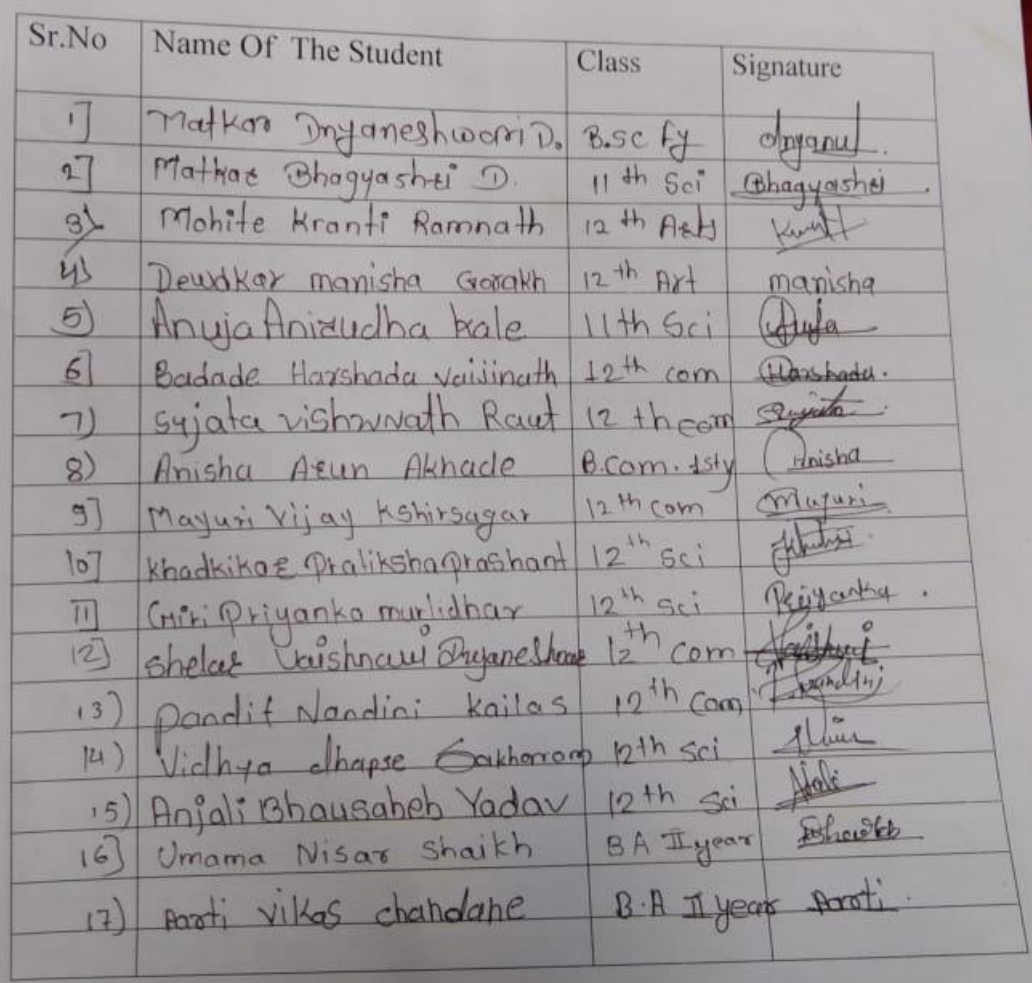 Sr.No Name Of The Student Class Signature
1] Matkar Dnyaneshwari D. B.sc fy
2] Matkar Bhagyashri D. 11 th Sci Bhagyashri
3) Mohite Kranti Ramnath 12 th Arts
4) Dewdkar manisha Gorakh 12 th Art manisha
5) Anuja Anirudha kale 11th Sci Anuja
6] Badade Harshada vaijinath 12th com Harshada.
7) sujata vishwnath Raut 12 th com Sujata
8) Anisha Arun Akhade B.com. 1sty Anisha
9] Mayuri Vijay Kshirsagar 12th com Mayuri
10] khadkikar Pratiksha prashant 12th sci
11] Giri Priyanka murlidhar 12th sci Priyanka.
12] shelar Vaishnavi Dnyaneshwar 12th com
13) pandit Nandini kailas 12th Com Nandini
14) Vidhya dhapse Sakharam 12th sci
15) Anjali Bhausaheb Yadav 12th sci
16] Umama Nisar shaikh BA II year
17) Aarti vikas chandane B.A II year Aarti.